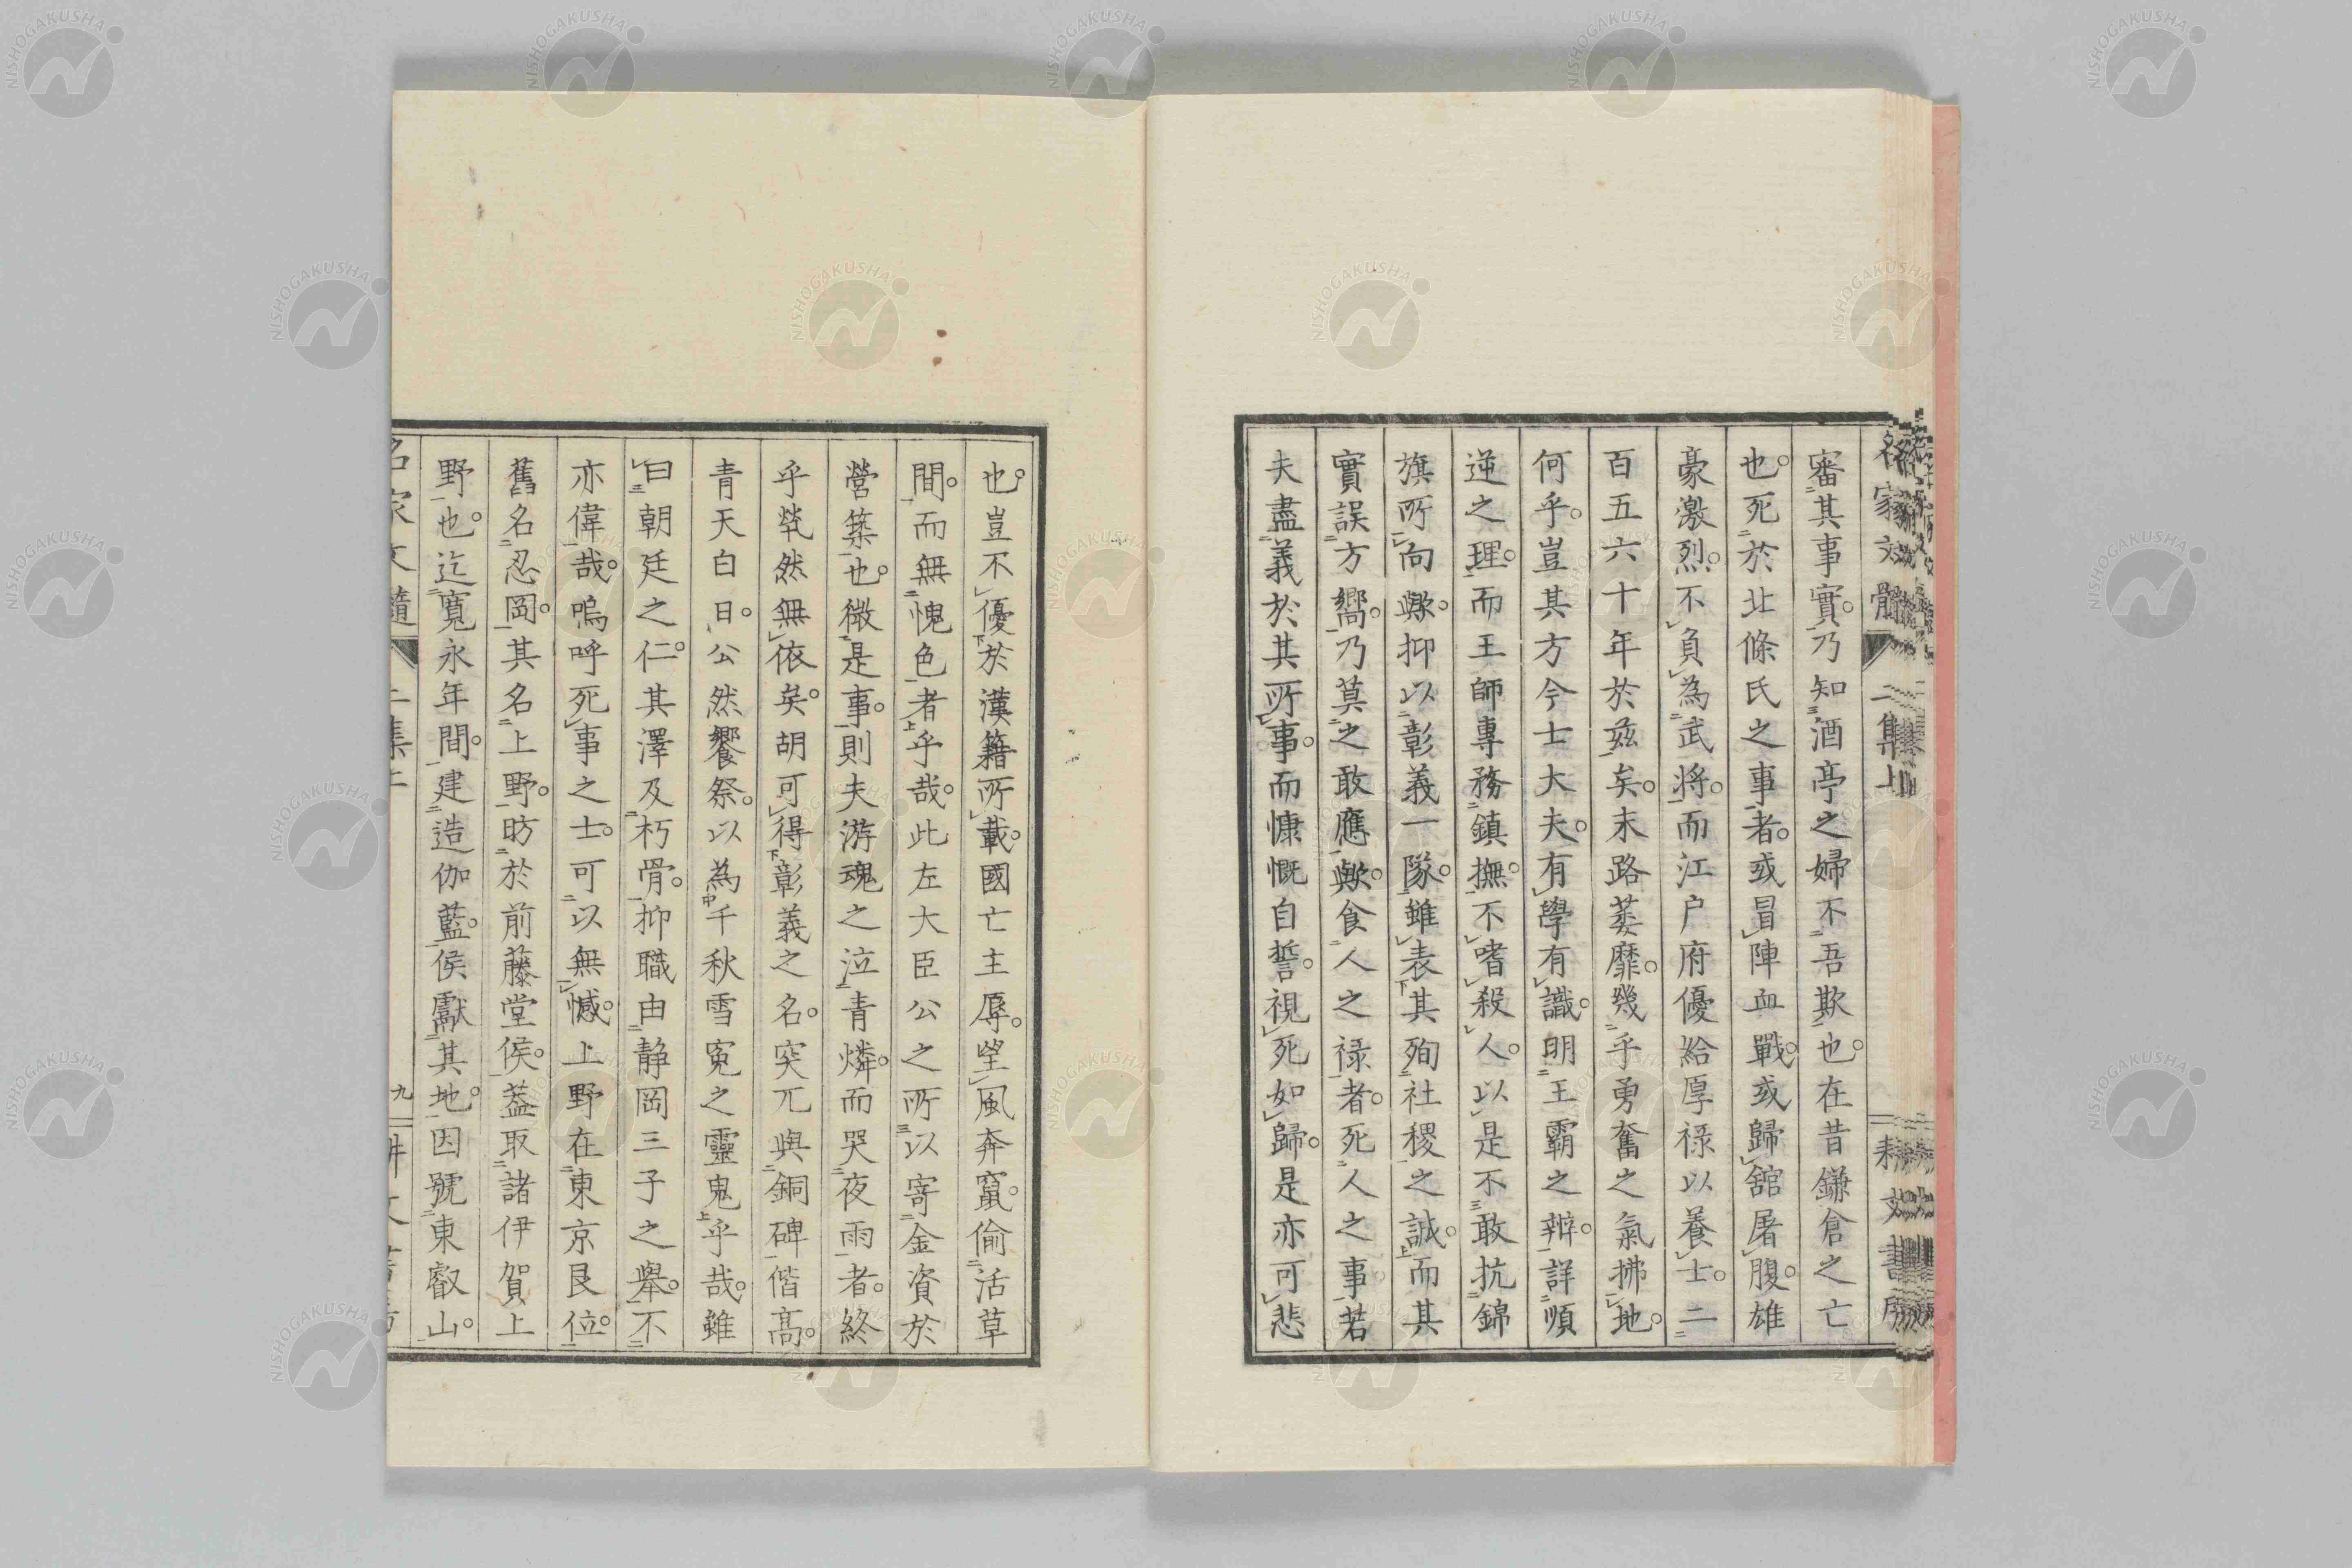 名家文髓 二集上
審其事實。乃知酒亭之婦不吾欺也。在昔鎌倉之亡
也。死於北條氏之事者。或冒陣血戰。或歸舘屠腹。雄
豪激烈。不負為武將。而江戶府優給厚祿以養士。二
百五六十年於玆矣。末路萎靡。幾乎勇奮之氣拂地。
何乎。豈其方今士大夫。有學有識。明王霸之辨。詳順
逆之理。而王師專務鎮撫。不嗜殺人。以是不敢抗錦
旗所向歟。抑以彰義一隊。雖表其殉社稷之誠。而其
實誤方嚮。乃莫之敢應歟。食人之祿者。死人之事。若
夫盡義於其所事。而慷慨自誓。視死如歸。是亦可悲
也。豈不優於漢籍所載。國亡主辱。望風奔竄。偷活草
間。而無愧色者乎哉。此左大臣公之所以寄金資於
營築也。微是事。則夫游魂之泣青燐。而哭夜雨者。終
乎煢然無依矣。胡可得彰義之名。突兀與銅碑偕高。
青天白日。公然饗祭。以為千秋雪寃之靈鬼乎哉。雖
曰朝廷之仁。其澤及朽骨。抑職由静岡三子之舉。不
亦偉哉。嗚呼死事之士。可以無憾。上野在東京艮位。
舊名忍岡。其名上野。昉於前藤堂侯。葢取諸伊賀上
野也。迄寬永年間。建造伽藍。侯獻其地。因號東叡山。
名家文髓 二集上 九
NISHOGAKUSHA